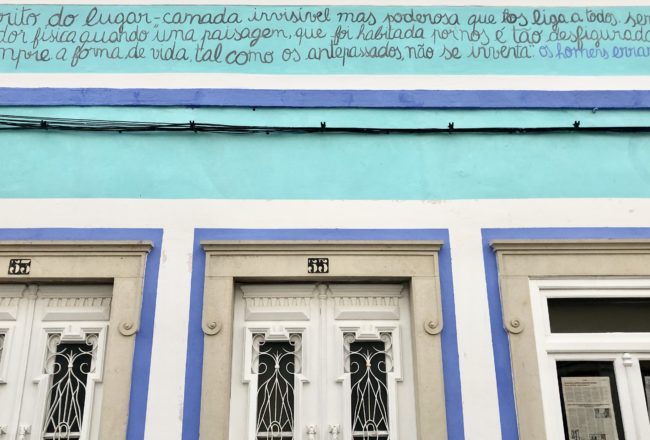 rito do lugar-camada invisível mas poderosa que nos liga a todos, ser
dor física quando "uma paisagem, que foi habitada por nós é tão desfigurada
mpre a forma de vida, tal como os antepassados, não se inventa." os homens erra
53
55